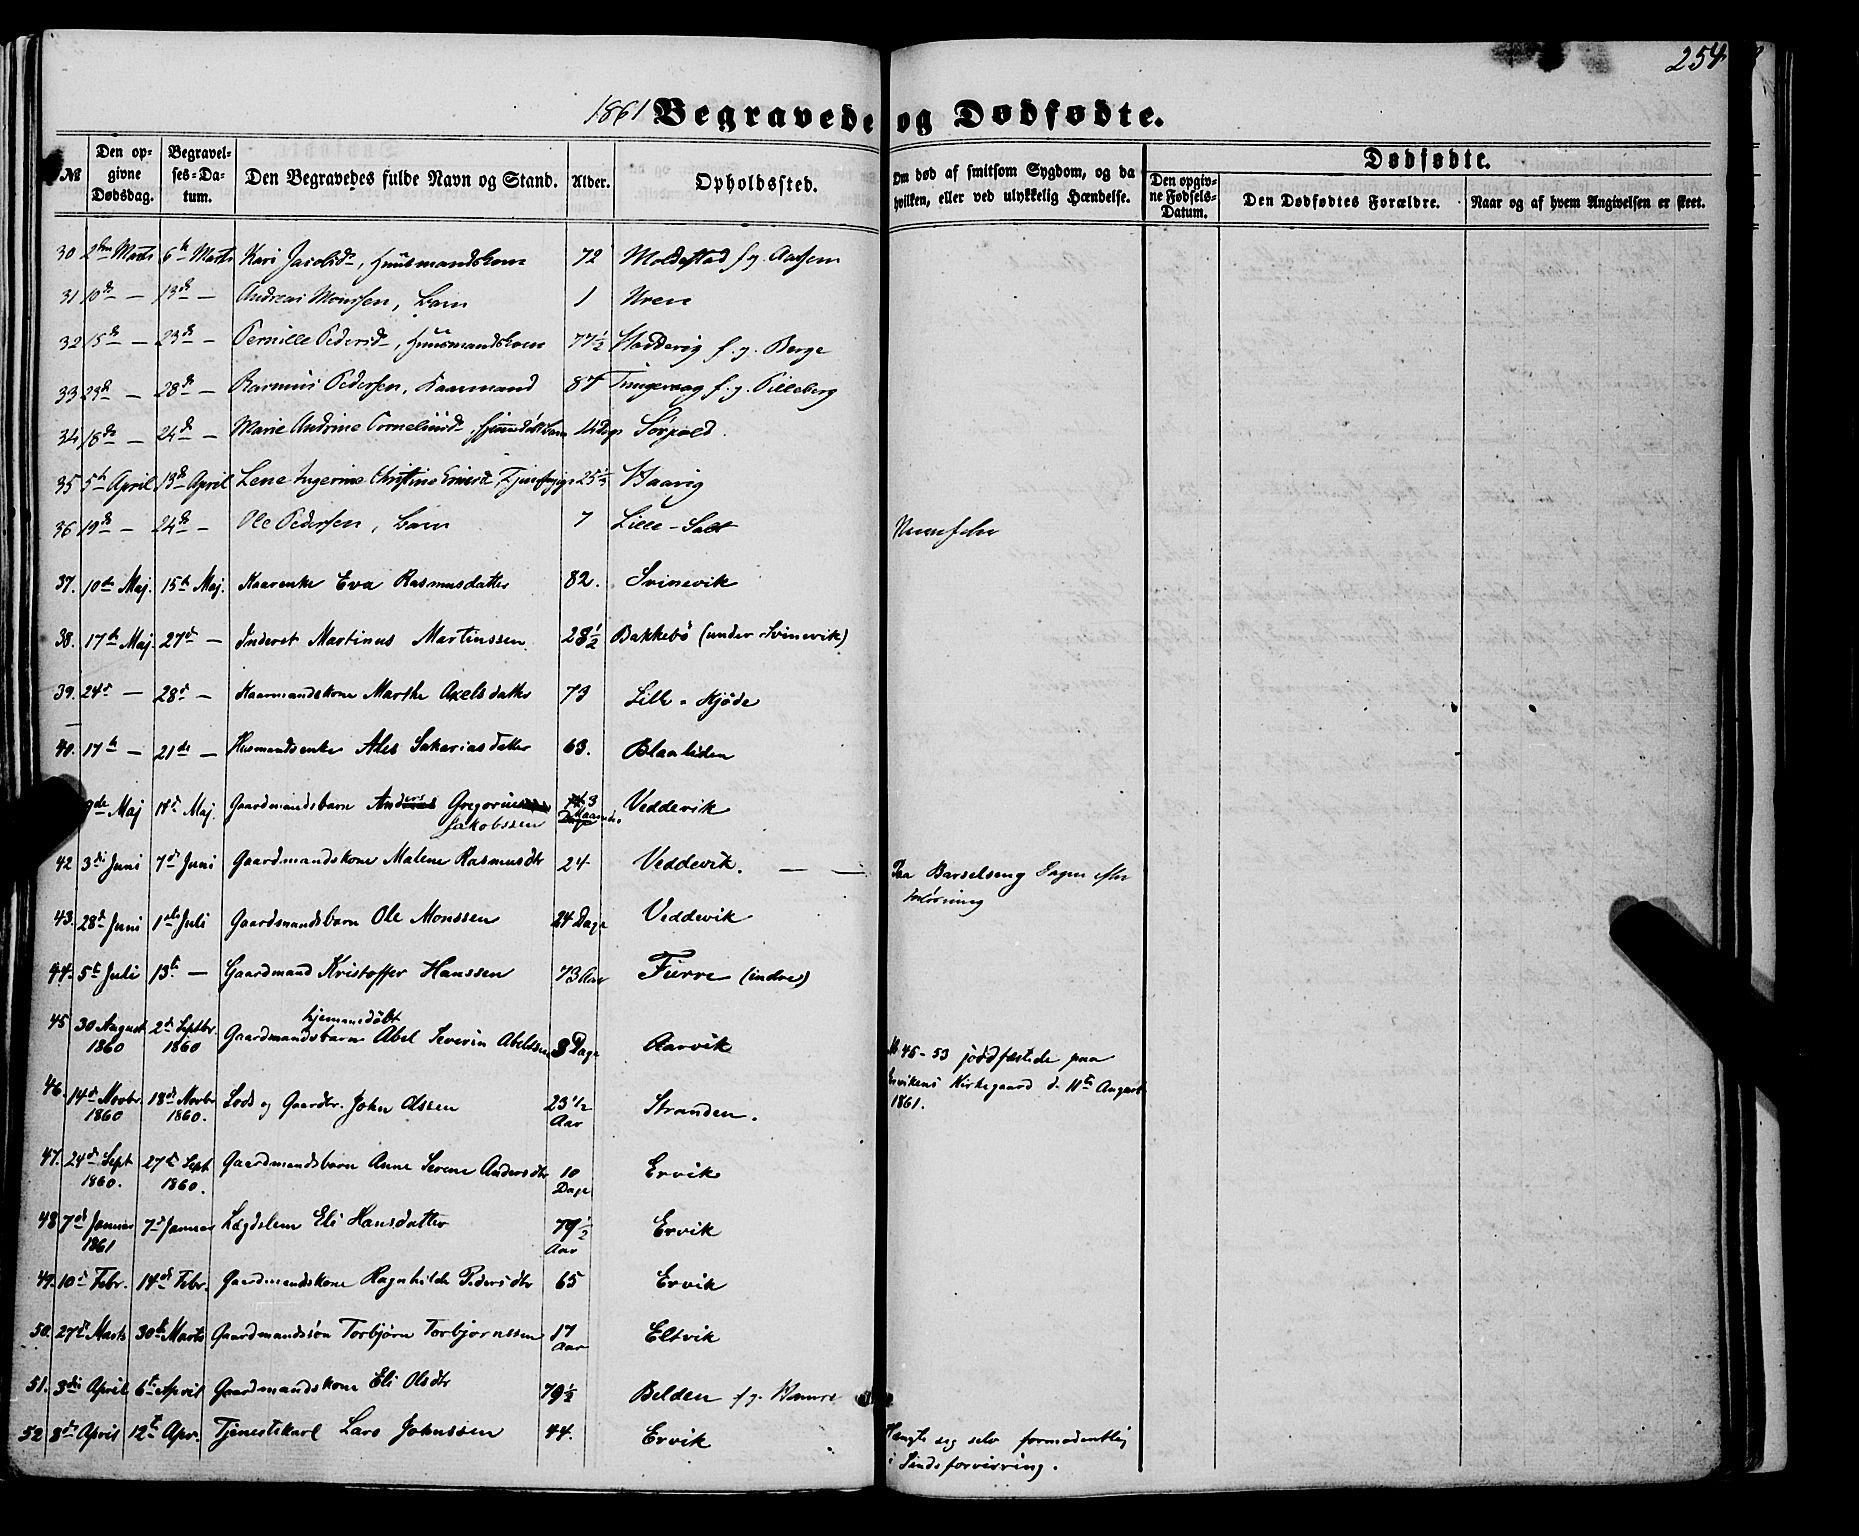 254
1861 Begravede og Dødfødte.
№ | Den opgivne Dødsdag. | Begravelses-Datum. | Den Begravedes fulde Navn og Stand. | Alder. | Opholdssted. | Om død af smitsom Sygdom, og da hvilken, eller ved ulykkelig Hændelse. | Dødfødte. | Den opgivne Fødsels-Datum. | Den Dødfødtes Forældre. | Naar og af hvem Angivelsen er skeet.
30 6te Marts Kari Jacobsdr, Huusmandskone 72 Moldestad
31 10de — 13de — Andreas Monssen, Barn 1
32 15de — 23de — Pernille Pedersdr, Huusmandskone 77½ f. g. Berge
33 23de — 28de — Rasmus Pedersen, Kaarmand 87 f. g.
34 18de — 24de — Marie Andrine Corneliusdr, hjemmedøbt Barn Dage
35 5te April 13de April Lene Ingerine Christine 25½ Vaavig
36 19de — 24de — Ole Pedersen, Barn 7 Lille-Salt
37. 10de Maj. 15de Maj. Kaarenke Eva Rasmusdatter 82. Svinevik
38. 17de Maj. 27de — Inderst Martinus Martinssen 28½ Bakkebö (under Svinevik)
39. 24de — 28de — Kaarmandskone Marthe Axelsdatter 73 Lille-Hjöde
40. 17de — 21de — Husmandsenke Ales Sakariasdatter 63. Blaaliden
9de Maj 18de Maj. Gaardmandsbarn Anders Gregorius Jakobssen 3 Maaneder Veddevik
42 3die Juni 7de Juni Gaardmandskone Malene Rasmusdtr 24 Veddevik. — — Paa Barselseng Dagen efter Forløsning
43. 28de Juni 1ste Juli Gaardmandsbarn Ole Monssen 24 Dage Veddevik
44. 5te Juli 13te — Gaardmand Kristoffer Hanssen 73 Aar Furre (indre)
45 30 August 1860 2den Septbr. 1860 Gaardmandsbarn hjemmedöbt Abel Severin Abelssen 3 Dage Aarvik № 45-53 jordfæstede paa Ervikens Kirkegaard d. 11te August 1861.
46. 14de Novbr. 1860 18de Novbr 1860. Lods og Gaardbr. John Olssen 23 1/2 Aar Stranden.
47. 24de Sept 1860. 27de Sept 1860. Gaardmandsbarn Anne Serene Andersdtr 10 Dage Ervik
48 7de Januar 1861 7de Januar Lægdslem Eli Hansdatter 79½ Aar Ervik
49. 10de Febr. 14de Febr. Gaardmandskone Ragnhilde Pedersdtr 65 Ervik
50. 27de Marts 30te Marts Gaardmandssön Torbjörn Torbjornssen 17 Aar Eltvik
51. 3die April 6te April Gaardmandskone Eli Olsdtr 79½ Belden f. g.
52 8de April 12te Apr. Tjenestekarl Lars Johnssen 44. Ervik Hængte sig selv formodentlig i Sindsforvirring.